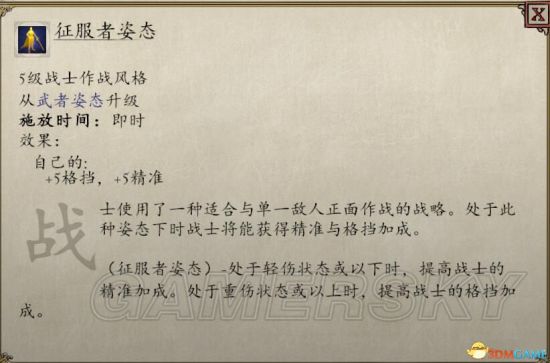 征服者姿态
X
5级战士作战风格
从武者姿态升级
施放时间：即时
效果：
自己的：
+5格挡，+5精准
战
士使用了一种适合与单一敌人正面作战的战略。处于此
种姿态下时战士将能获得精准与格挡加成。
（征服者姿态）-处于轻伤状态或以下时，提高战士的
精准加成。处于重伤状态或以上时，提高战士的格挡加
成。
GAMERSKY
3DMGAME